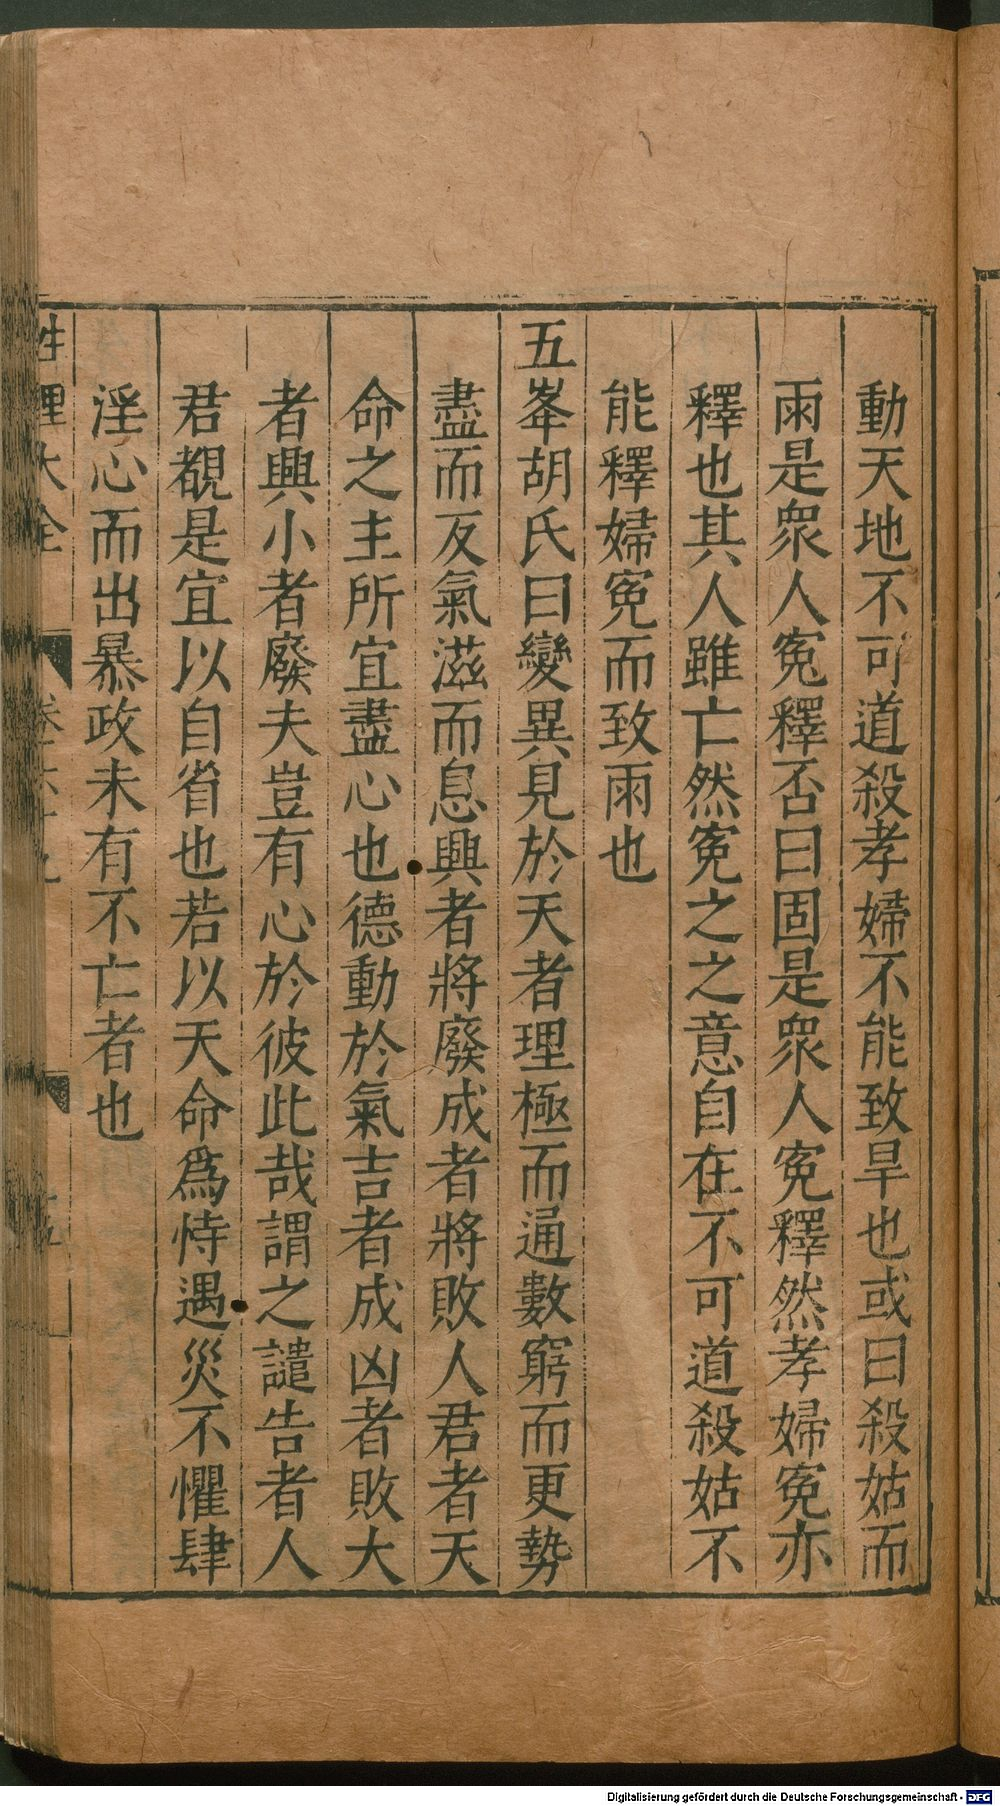 動天地不可道殺孝婦不能致旱也或曰殺姑而
雨是衆人寃釋否曰固是衆人寃釋然孝婦寃亦
釋也其人雖亡然寃之之意自在不可道殺姑不
能釋婦寃而致雨也
五峯胡氏曰變異見於天者理極而通數窮而更勢
盡而反氣滋而息興者將廢成者將敗人君者天
命之主所宜盡心也德動於氣吉者成凶者敗大
者興小者廢夫豈有心於彼此哉謂之譴告者人
君覩是宜以自省也若以天命爲恃遇災不懼肆
淫心而出暴政未有不亡者也
性理大全 卷六十九
Digitalisierung gefördert durch die Deutsche Forschungsgemeinschaft - DFG